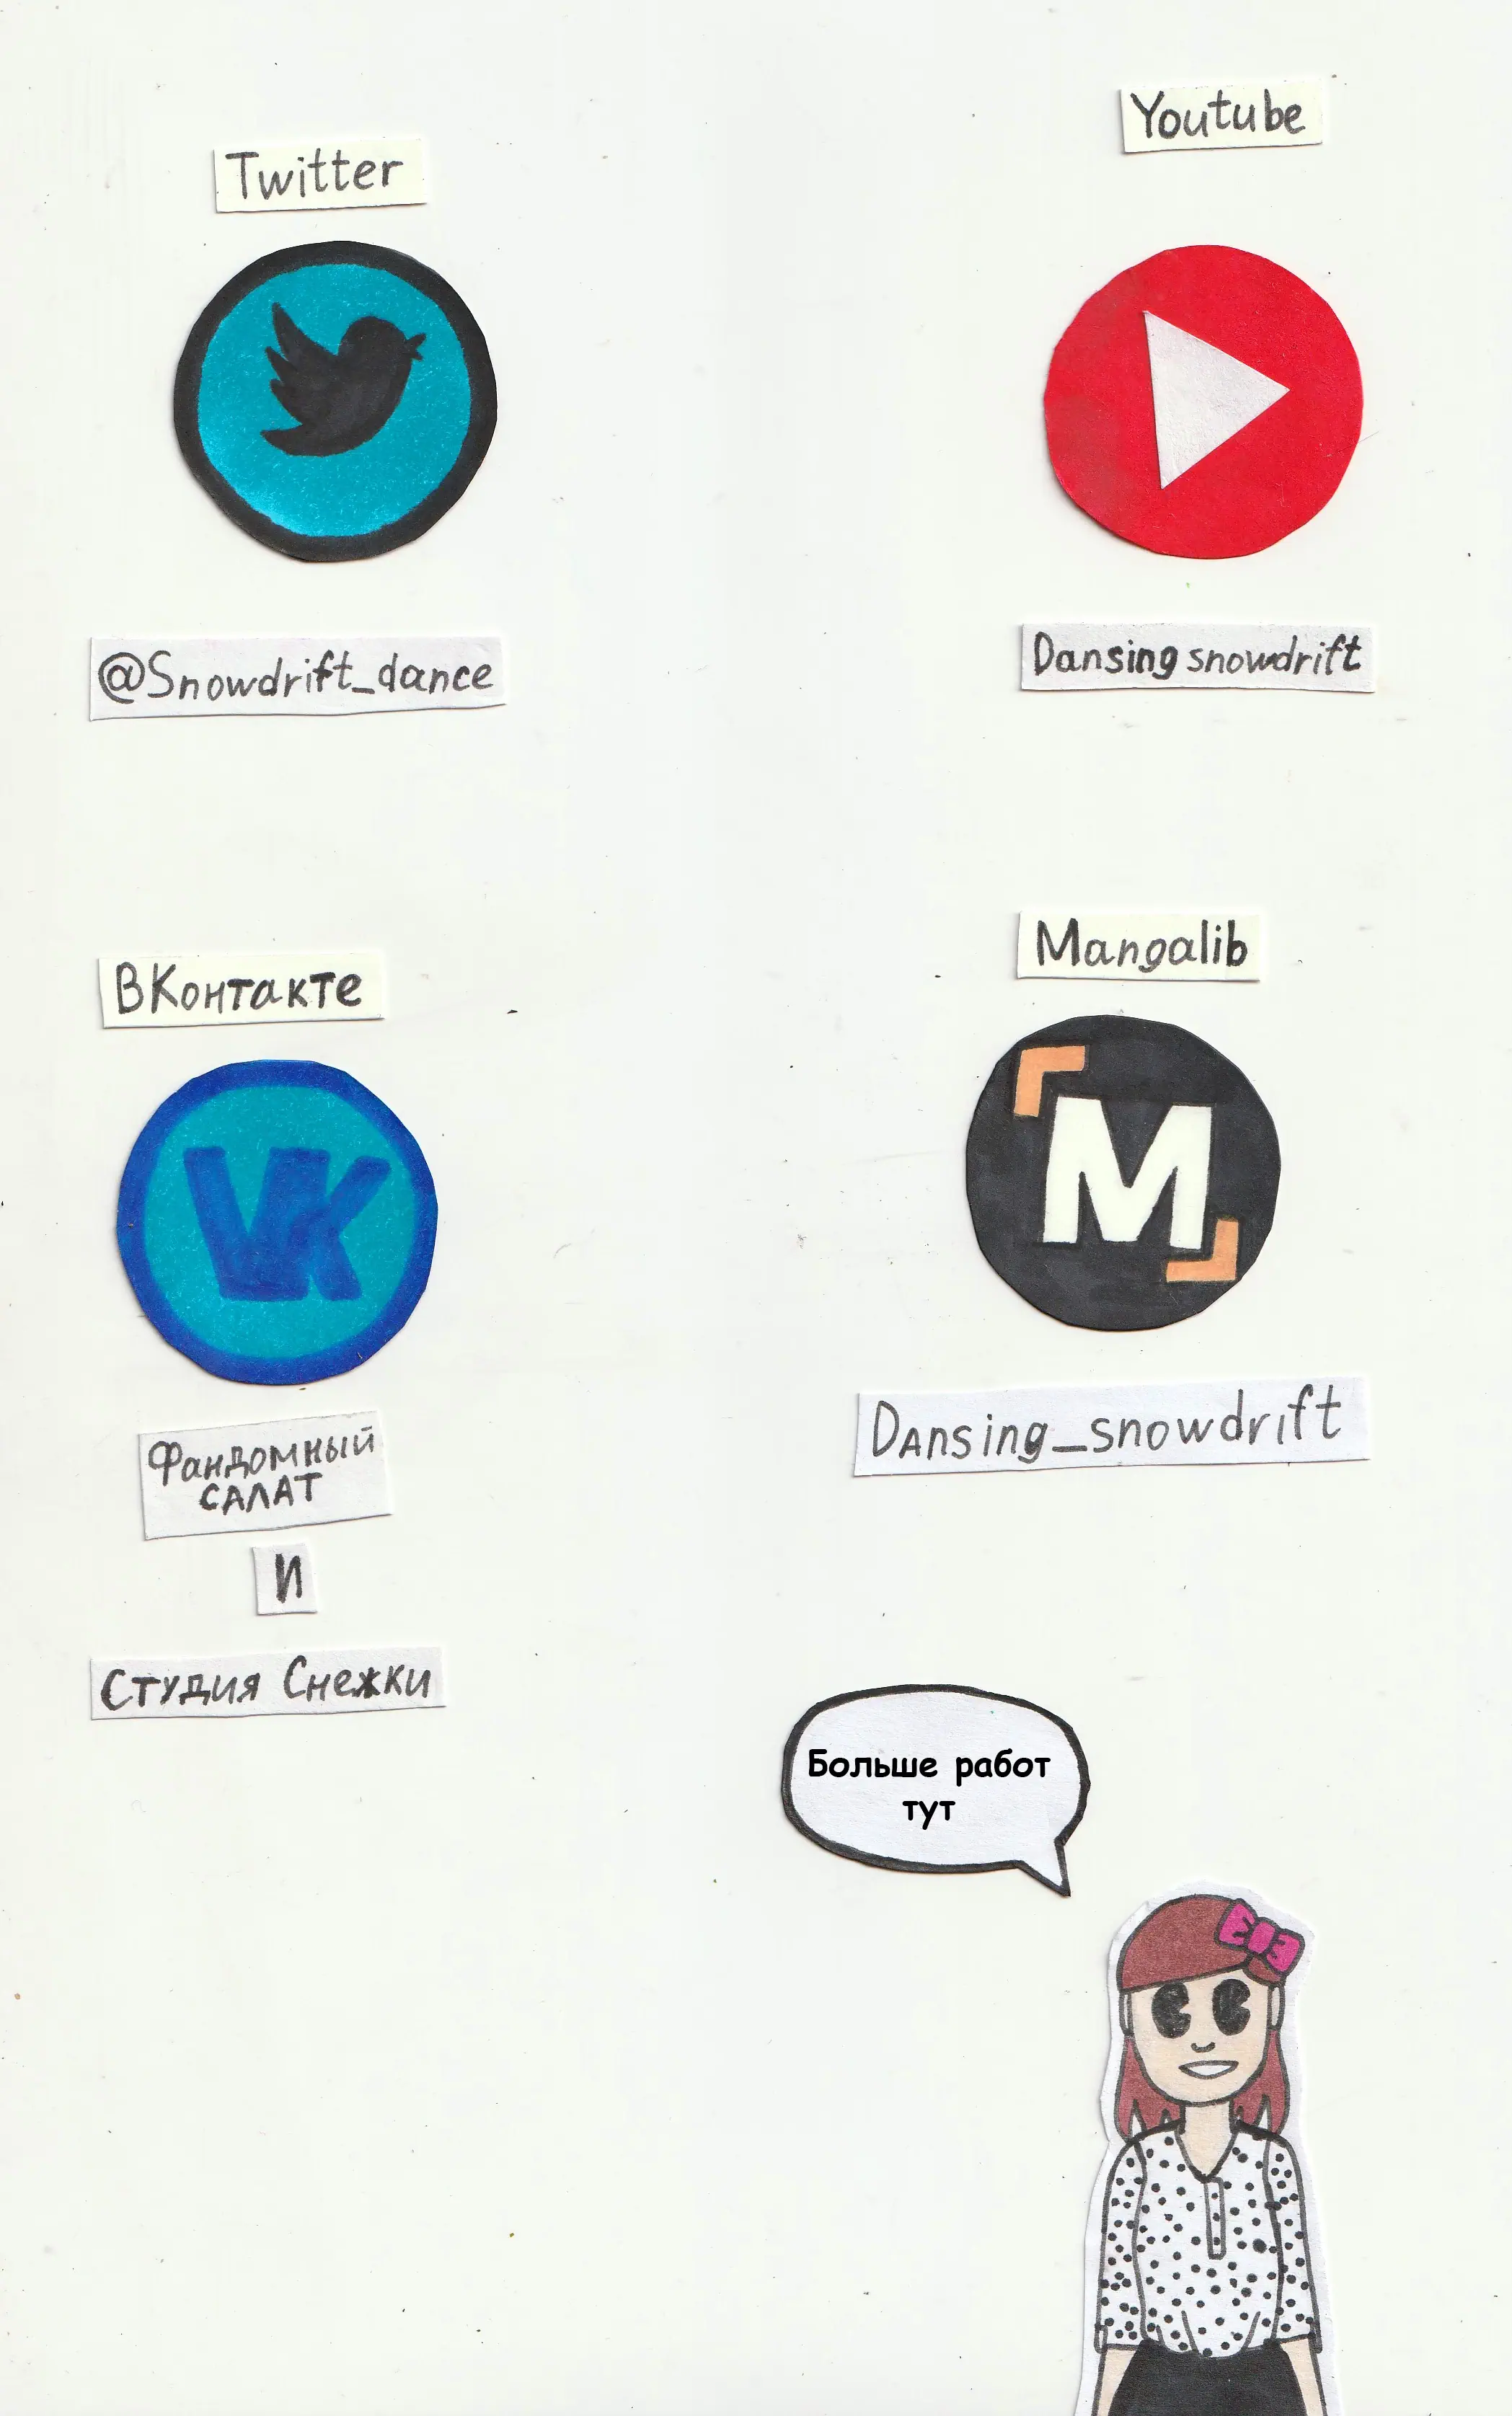 Twitter
@Snowdrift_dance
Youtube
Dansing snowdrift
ВКонтакте
VK
Фандомный
САЛАТ
И
Студия Снежки
Mangalib
M
Dansing_snowdrift
Больше работ
тут